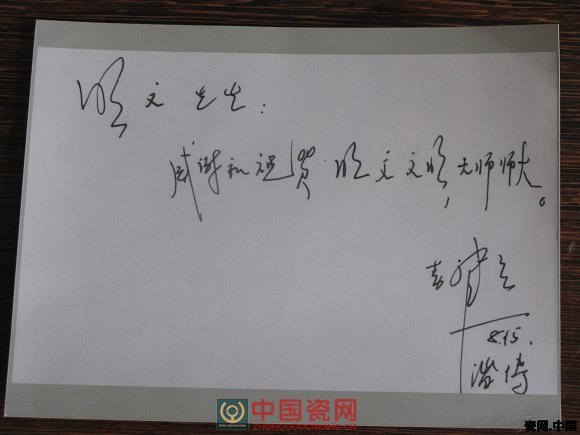 明文先生:
感谢和祝贺 明文文明,大师师大。
8.15.
中国瓷网
ZHONGGUOCIWANG.CN
瓷网.中国